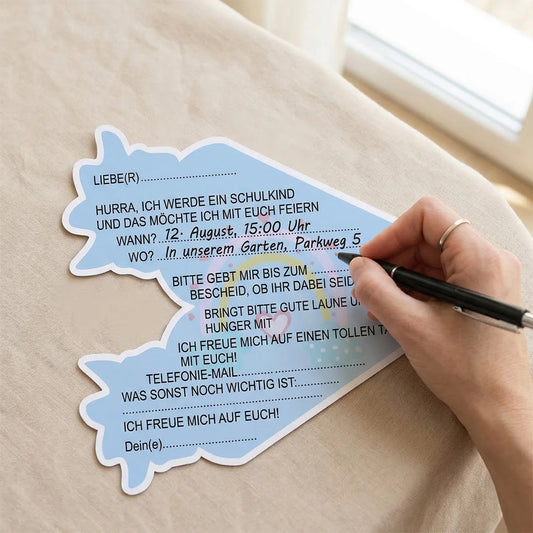 LIEBE(R)..........................
HURRA, ICH WERDE EIN SCHULKIND
UND DAS MÖCHTE ICH MIT EUCH FEIERN
WANN? 12. August, 15:00 Uhr
WO? In unserem Garten, Parkweg 5
BITTE GEBT MIR BIS ZUM ..............
BESCHEID, OB IHR DABEI SEID
BRINGT BITTE GUTE LAUNE U
HUNGER MIT
ICH FREUE MICH AUF EINEN TOLLEN TA
MIT EUCH!
TELEFONIE-MAIL..................................
WAS SONST NOCH WICHTIG IST:............
......................................................
ICH FREUE MICH AUF EUCH!
Dein(e)..........................